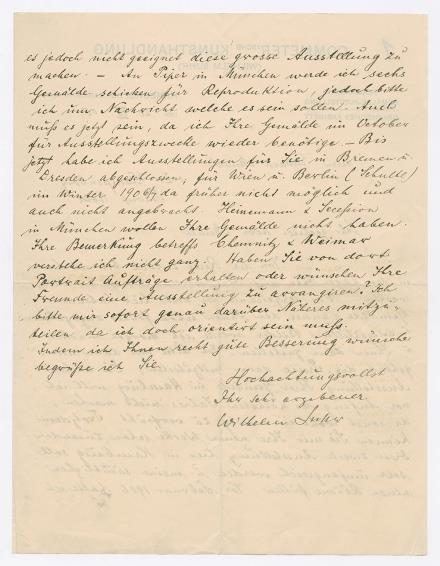 es jedoch nicht geeignet diese grosse Ausstellung zu
machen. — An Piper in München werde ich sechs
Gemälde schicken für Reproduktion, jedoch bitte
ich um Nachricht welche es sein sollen. Auch
muß es jetzt sein, da ich Ihre Gemälde im October
für Ausstellungszwecke wieder benötige. — Bis
jetzt habe ich Ausstellungen für Sie in Bremen u.
Dresden abgeschlossen, für Wien u. Berlin (Schulte)
im Winter 1906/7 da früher nicht möglich und
auch nicht angebracht. Heinemann & Secession
in München wollen Ihre Gemälde nicht haben.
Ihre Bemerkung betreffs Chemnitz & Weimar
verstehe ich nicht ganz. Haben Sie von dort
Portrait Aufträge erhalten oder wünschen Ihre
Freunde eine Ausstellung zu arrangiren? Ich
bitte mir sofort genau darüber Näheres mitzu-
teilen da ich doch orientirt sein muß.
Indem ich Ihnen recht gute Besserung wünsche
begrüße ich Sie
Hochachtungsvollst
Ihr sehr ergebener
Wilhelm Suhr